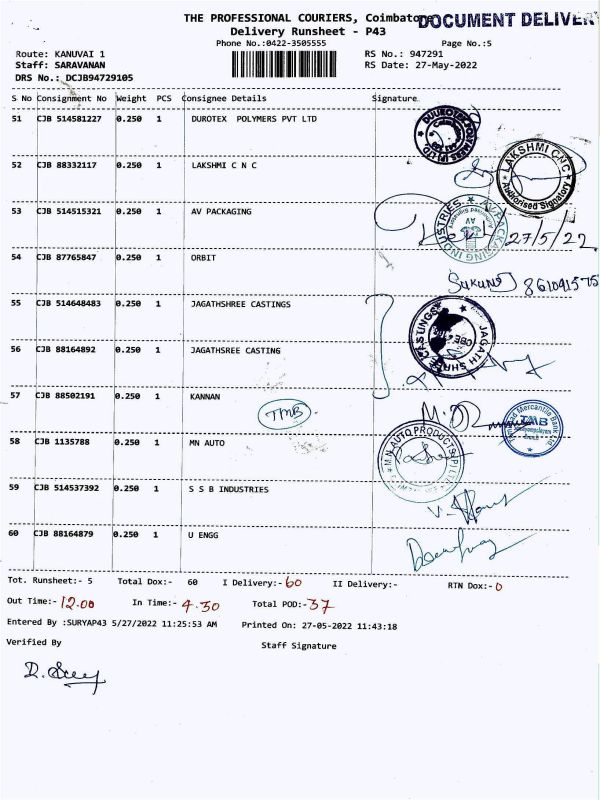 THE PROFESSIONAL COURIERS, Coimbatore
DOCUMENT DELIVERY
Delivery Runsheet - P43
Phone No.:0422-3505555
Page No.:5
Route: KANUVAI 1
RS No.: 947291
Staff: SARAVANAN
RS Date: 27-May-2022
DRS No.: DCJB94729105
S No Consignment No Weight PCS Consignee Details Signature
51 CJB 514581227 0.250 1 DUROTEX POLYMERS PVT LTD
52 CJB 88332117 0.250 1 LAKSHMI C N C
LAKSHMI CNC
Authorised Signatory
53 CJB 514515321 0.250 1 AV PACKAGING
AV PACKAGING INDUSTRIES
27/5/22
54 CJB 87765847 0.250 1 ORBIT
55 CJB 514648483 0.250 1 JAGATHSHREE CASTINGS
56 CJB 88164892 0.250 1 JAGATHSREE CASTING
57 CJB 88502191 0.250 1 KANNAN
TMB
TMB
58 CJB 1135788 0.250 1 MN AUTO
M.N AUTO PRODUCTS
59 CJB 514537392 0.250 1 S S B INDUSTRIES
60 CJB 88164879 0.250 1 U ENGG
Tot. Runsheet:- 5 Total Dox:- 60 I Delivery:- 60 II Delivery:- RTN Dox:- 0
Out Time:- 12.00 In Time:- 4.30 Total POD:- 37
Entered By :SURYAP43 5/27/2022 11:25:53 AM Printed On: 27-05-2022 11:43:18
Verified By Staff Signature